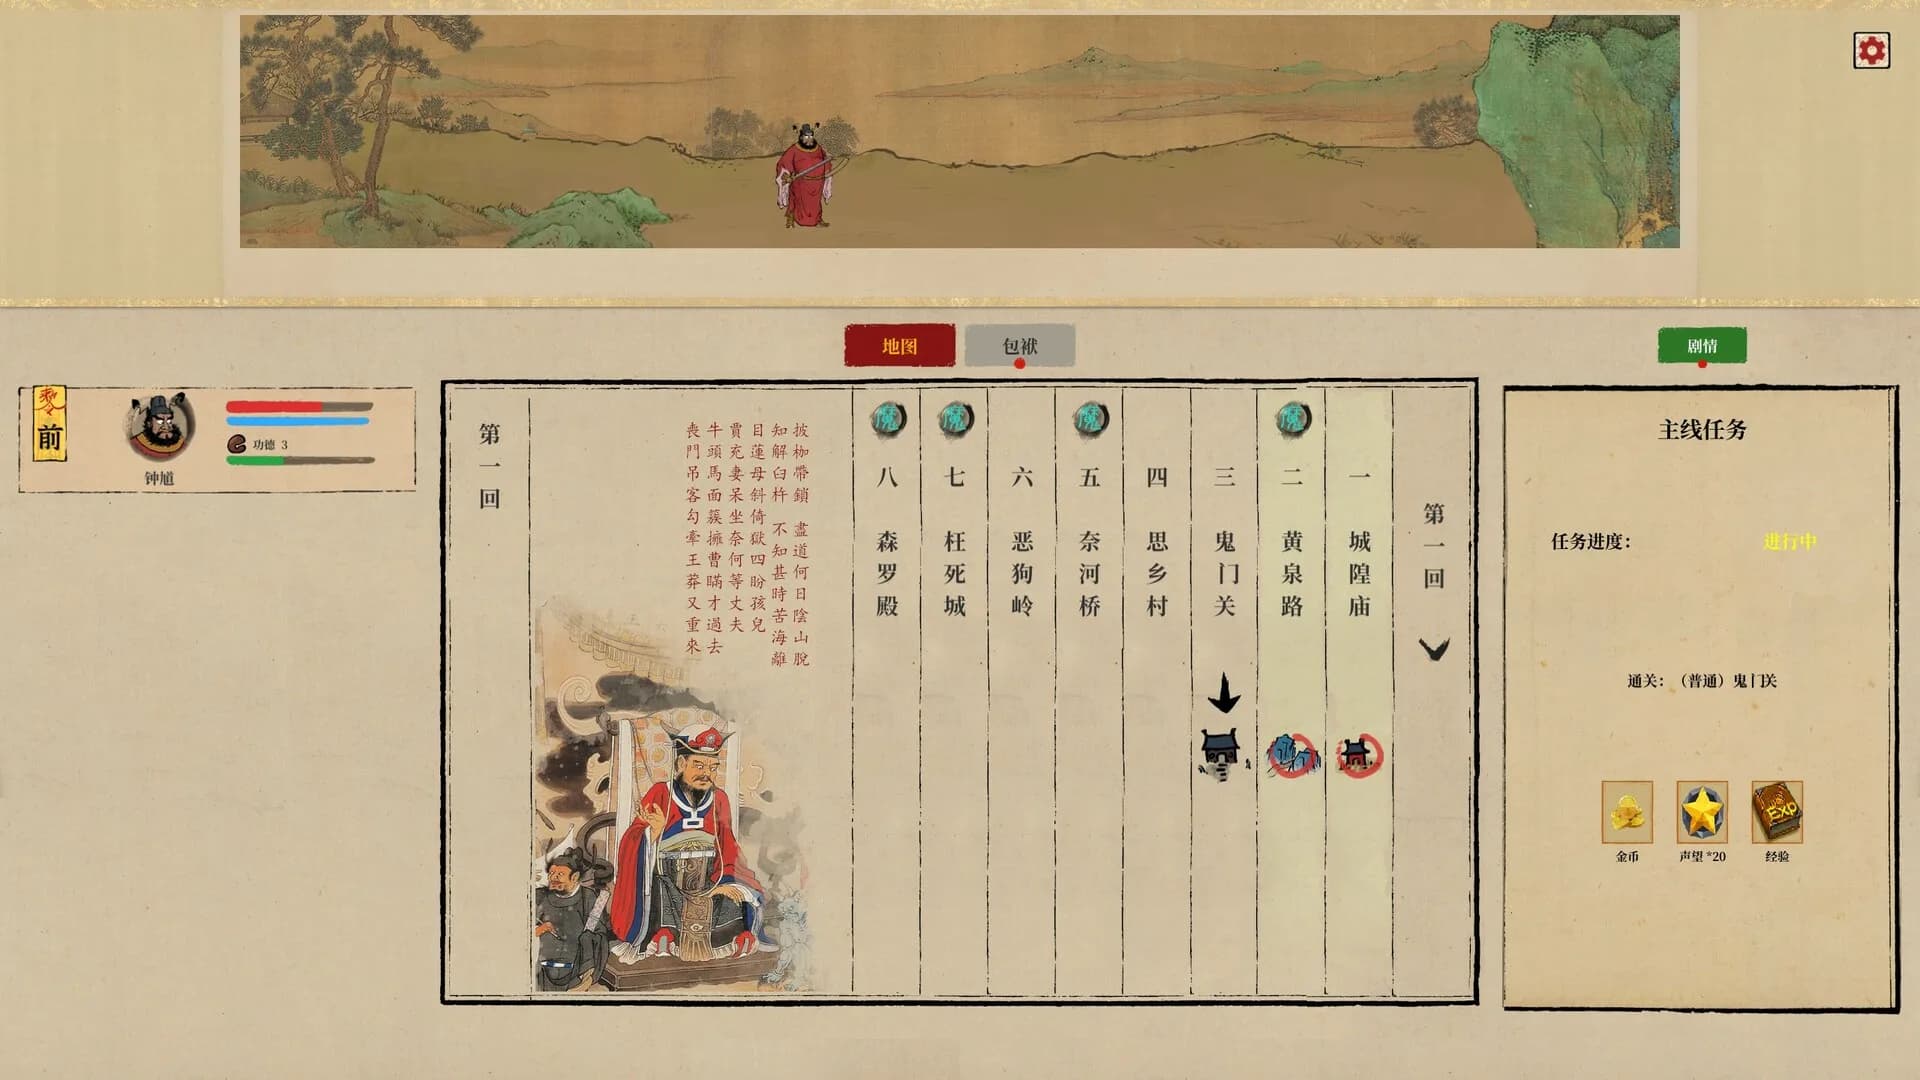 地图
包袱
剧情
令
前
功德 3
钟馗
第一回
一 城隍庙
魔 二 黄泉路
三 鬼门关
四 思乡村
魔 五 奈河桥
六 恶狗岭
魔 七 枉死城
魔 八 森罗殿
披枷帶鎖 盡道何日陰山脫
知解臼杵 不知甚時苦海離
目蓮母斜倚獄四盼孩兒
賈充妻呆坐奈何等丈夫
牛頭馬面簇擁曹瞞才過去
喪門吊客勾牽王莽又重來
第一回
主线任务
任务进度：
进行中
通关：（普通）鬼门关
EXP
金币
声望*20
经验